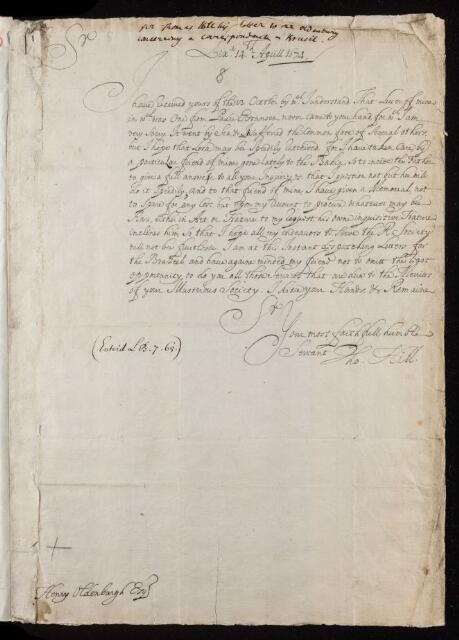 Sr Thomas Hill his letter to Mr Oldenburg
concerning a correspondence in Brasil.
Sr
Lixa 14th Aprill 1674
8
I have receved yours of the October by wch I understand That Letter of mine
in wch was One from Padre Estancon never came to your hand for wch I am
very Sorry It went by Sea & Suffered the Common fate of Severall others.
but I hope that Loss may be Speedily restored for I have taken Care by
a particular friend of mine gone lately to the Brasile, As to incite the Father
to give a full answer to all your Inquirys so that I question not but he will
do it Speedily, and to that friend of mine I have given a Memorial not
to Spare for any Cost but Upon my Account to procure Whatever may be
Rare, either in Art or Nature to my request his own inquisitive Nature
inclines him So that I hope all my endeavors to Serve the R: Society
will not be fruitless. I am at this Instant dispatching Letters for
the Brasile and have againe minded my friend not to omitt the least
oppertunity to do you all those Services that are due to the Merits
of your Illustrious Society. I kiss your Hands & Remaine
Sr
Your most faithfull humble
Servant
Tho. Hill
(Entrid L.B. 7. 65.)
Henry Oldenburgh Esqr